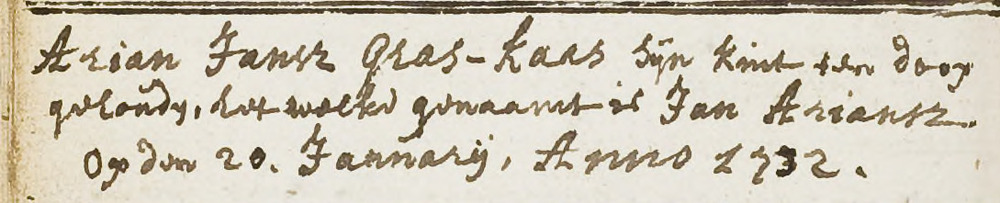 Arian Jansz Gras-kaas sijn kint ten doop
gehoudĳ, het welke genaamt is Jan Ariansz.
Op den 20. Januarij, Anno 1732.